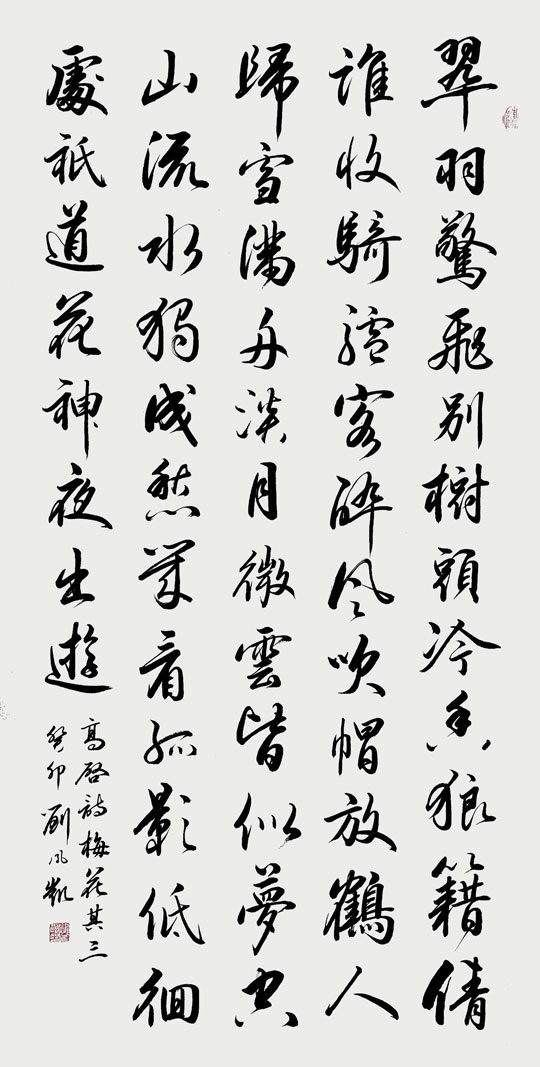 翠羽驚飛別樹頭冷香狼籍倩
誰收騎驢客醉風吹帽放鶴人
歸雪滿舟淡月微雲皆似夢空
山流水獨成愁幾看孤影低徊
處祇道花神夜出遊
高啓詩梅花其三
癸卯劉風凱